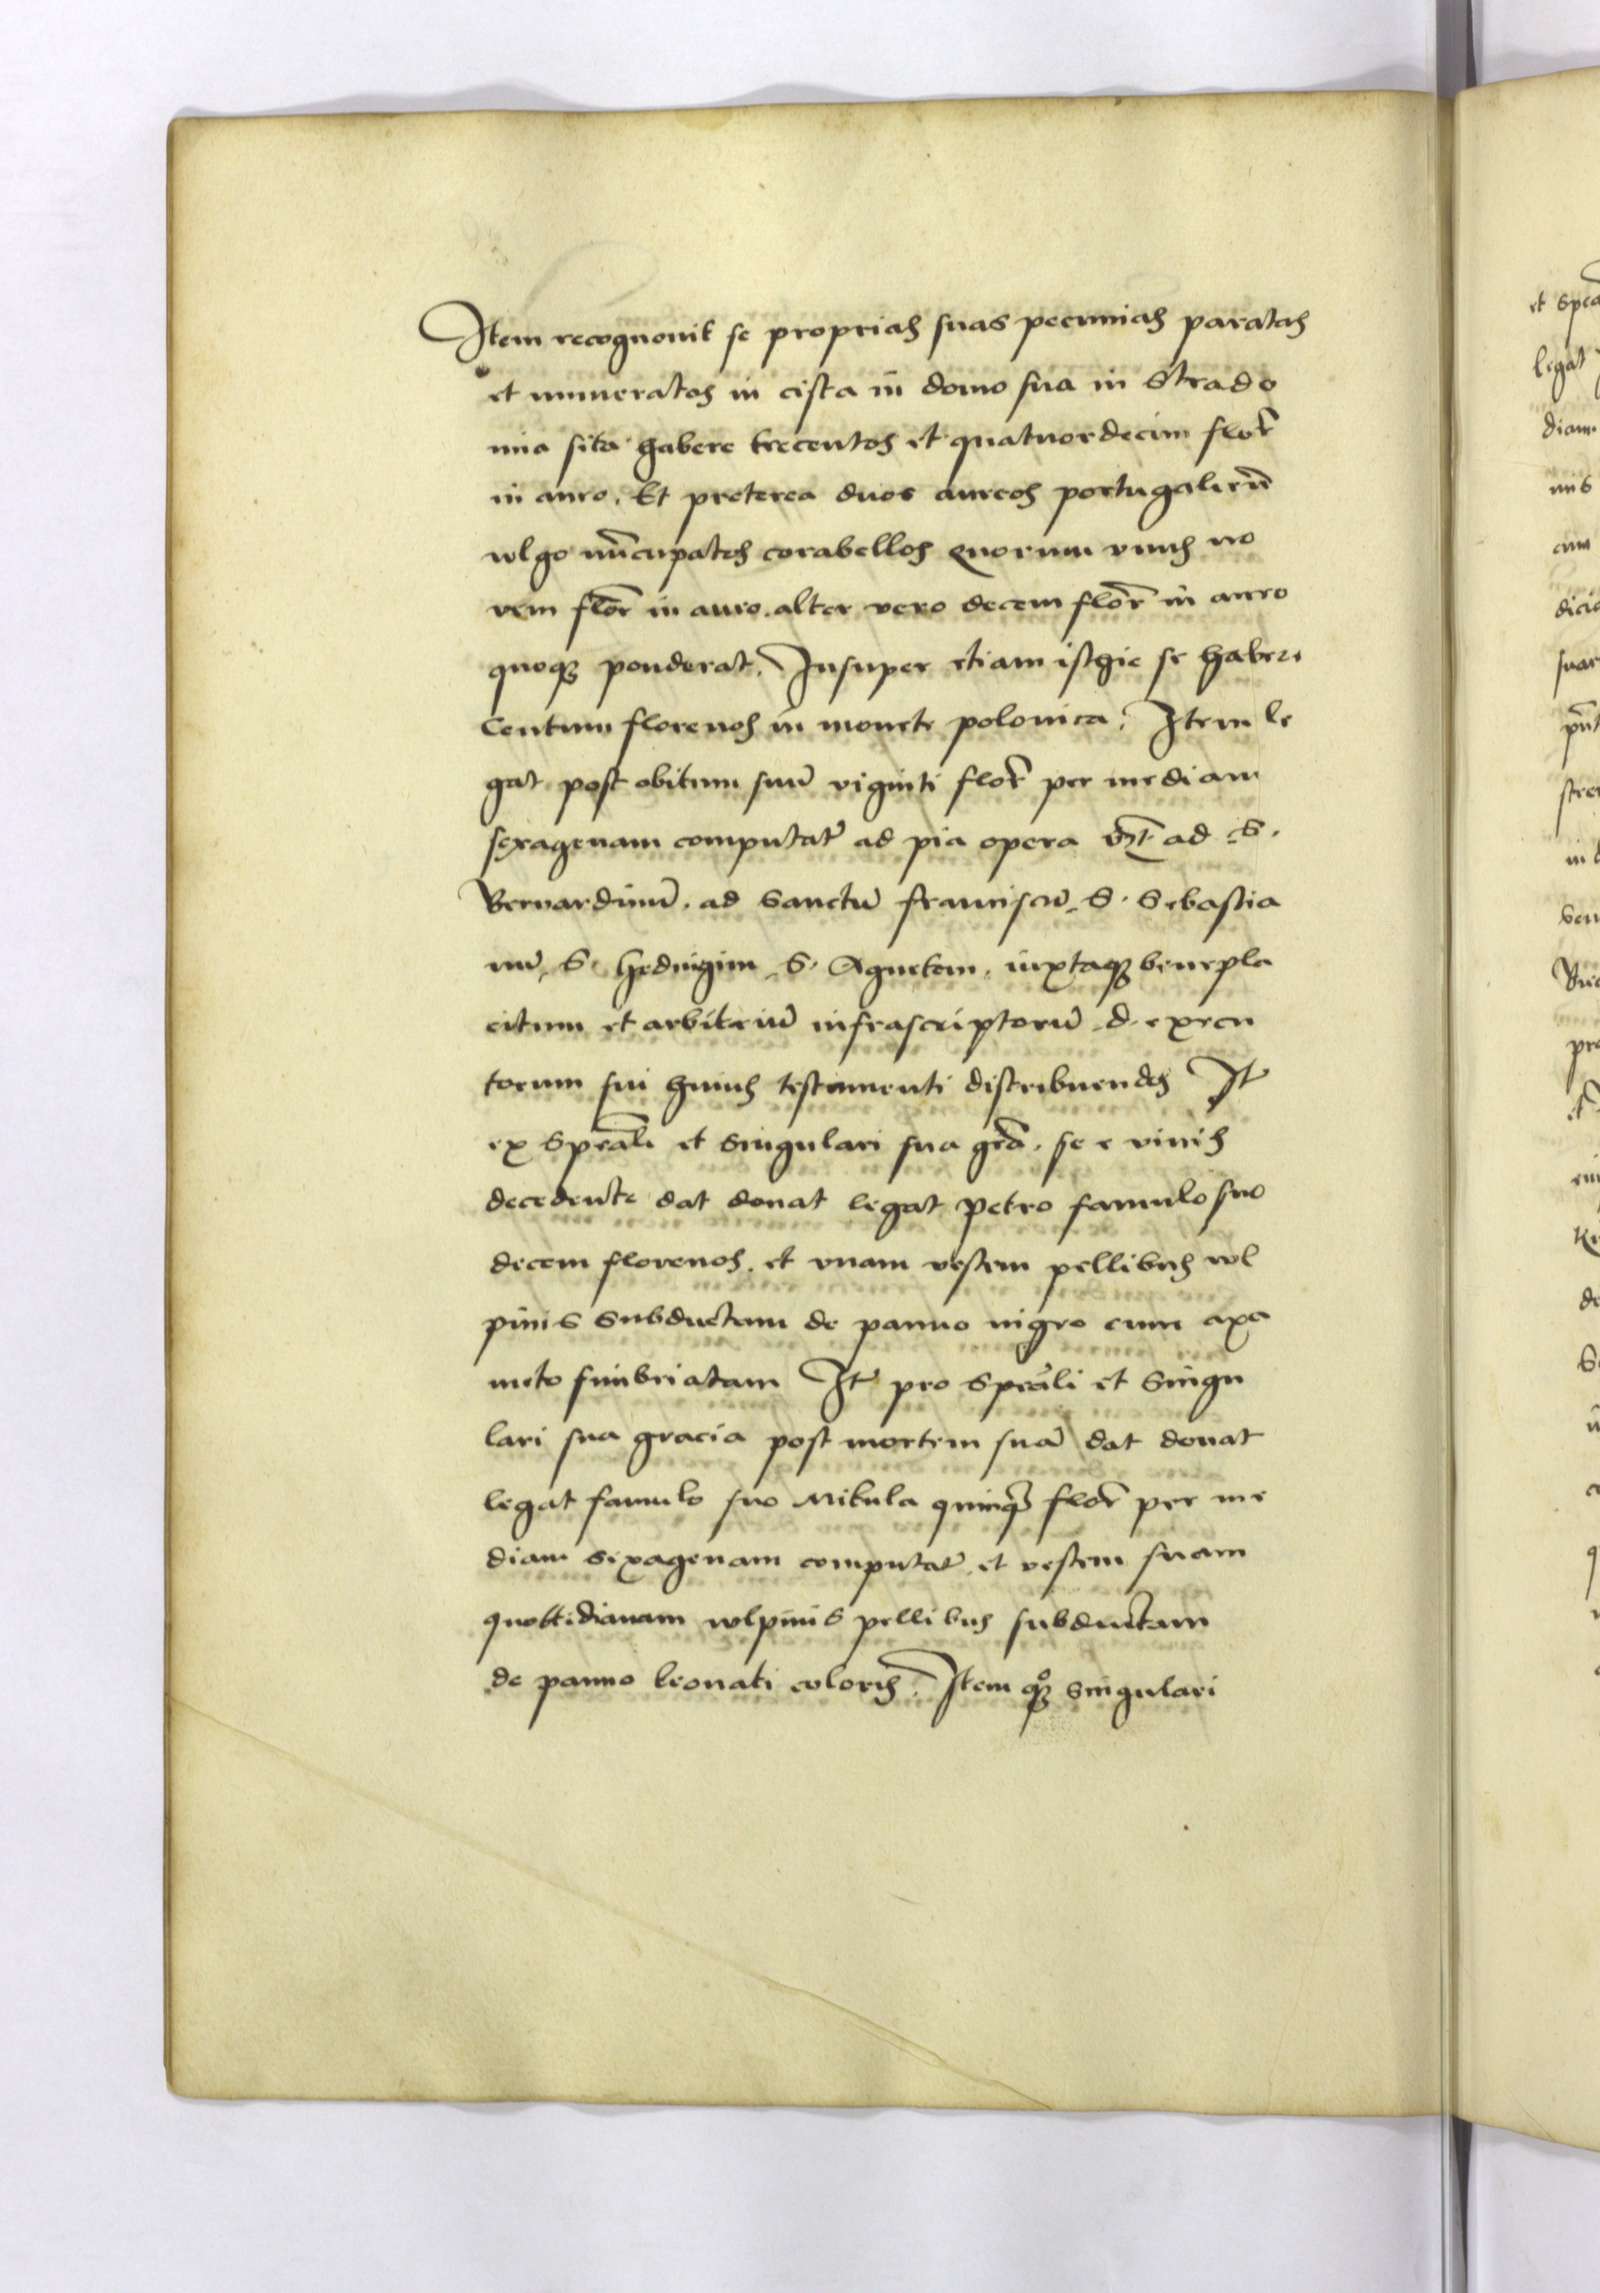 Item recognovit se proprias suas pecunias paratas
et numeratos in cista in domo sua in Strado
mia sita habere trecentos et quatuordecim flor̄
in auro. Et preterea duos aureos portugaliēn̄
wlgo nūcupatos corabellos quorum vnus no
vem flor̄ in auro. alter vero decem flor̄ in auro
quoqꝫ ponderat. Insuper etiam isthic se habere
Centum florenos in monete polonica. Item le
gat post obitum suū viginti flor̄ per mediam
sexagenam computat̄ ad pia opera vꝫt ad S.
Bernardinū. ad Sanctū franciscū. S. Sebastia
nū. S. Hedvigim. S. Agnetem. iuxtaqꝫ benepla
citum et arbitriū infrascriptorū d. execu
torum sui huius testamenti distribuendos It̄
ex Speāli et Singulari sua grā. se e vivis
decedente dat donat legat Petro famulo suo
decem florenos. et vnam vestem pellibus wl
pinis Subductam de panno nigro cum axa
meto fimbriatam It̄ pro Speāli et Singu
lari sua gracia post mortem suā dat donat
legat famulo suo Mikula quinqꝫ flor̄ per me
diam Sexagenam computat̄. et vestem suam
quottidianam wlpinis pellibus subductam
de panno leonati coloris. Item qͦqꝫ Singulari
et
legat
diam